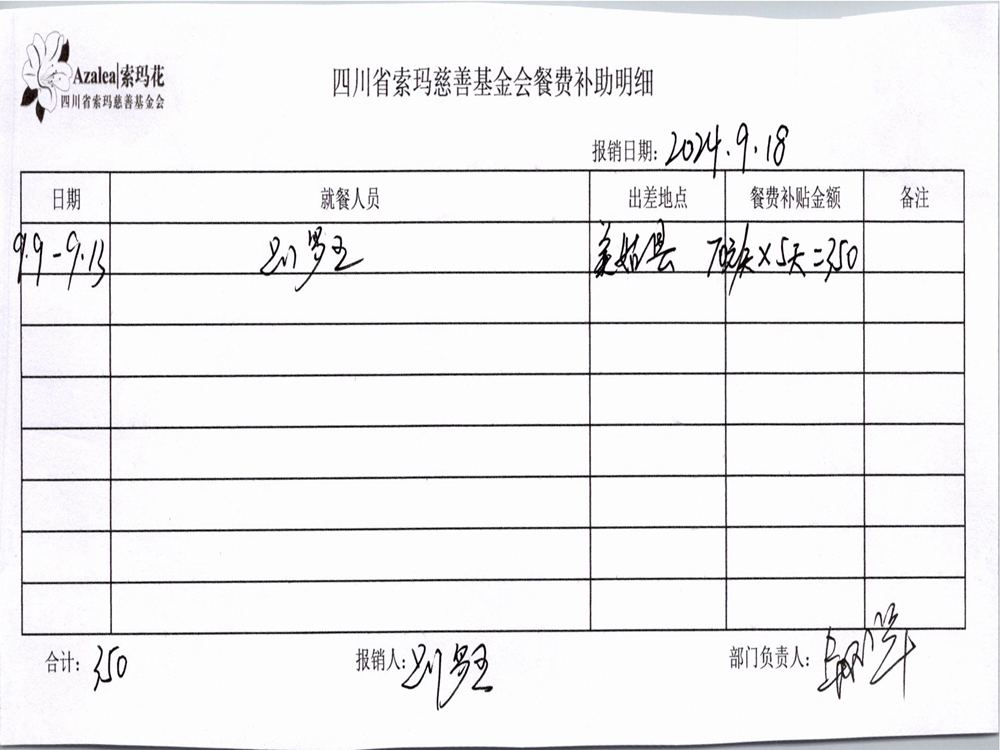 Azalea|索玛花
四川省索玛慈善基金会
四川省索玛慈善基金会餐费补助明细
报销日期：2024.9.18
日期 就餐人员 出差地点 餐费补贴金额 备注
9.9-9.13 美姑县 70元/天×5天=350
合计：350 报销人： 部门负责人：